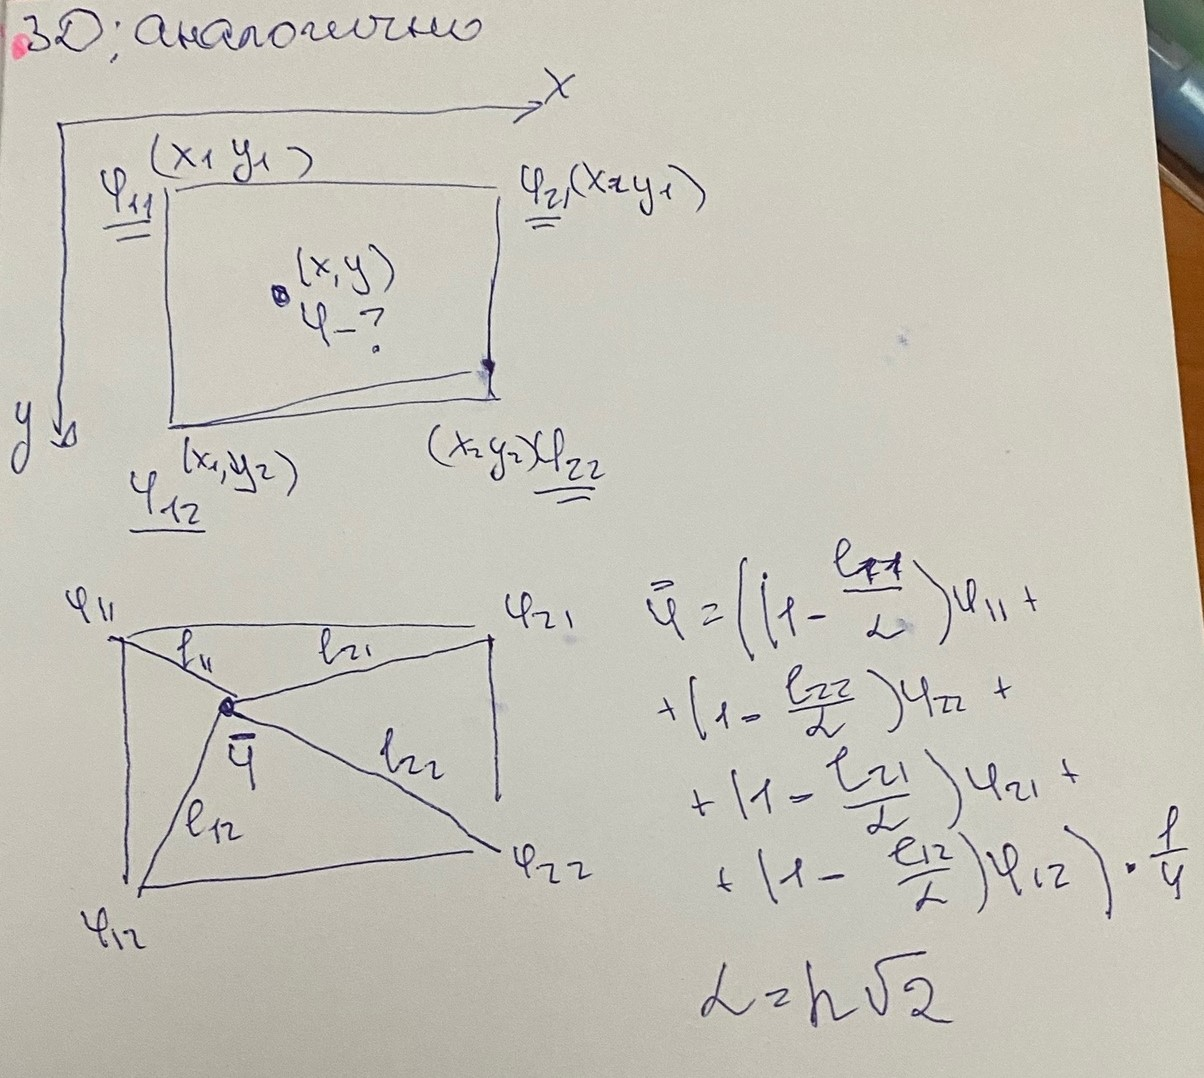 3D; аналогично
x
(x₁ y₁)
φ₁₁
φ₂₁(x₂y₁)
(x,y)
φ-?
y
(x₁,y₂)
(x₂y₂)φ₂₂
φ₁₂
φ₁₁
φ₂₁
l₁₁
l₂₁
φ̄
l₂₂
l₁₂
φ₂₂
φ₁₂
φ̄ = ((1 - l₁₁/L)φ₁₁ +
+(1 - l₂₂/L)φ₂₂ +
+(1 - l₂₁/L)φ₂₁ +
+(1 - l₁₂/L)φ₁₂) · 1/4
L = h√2